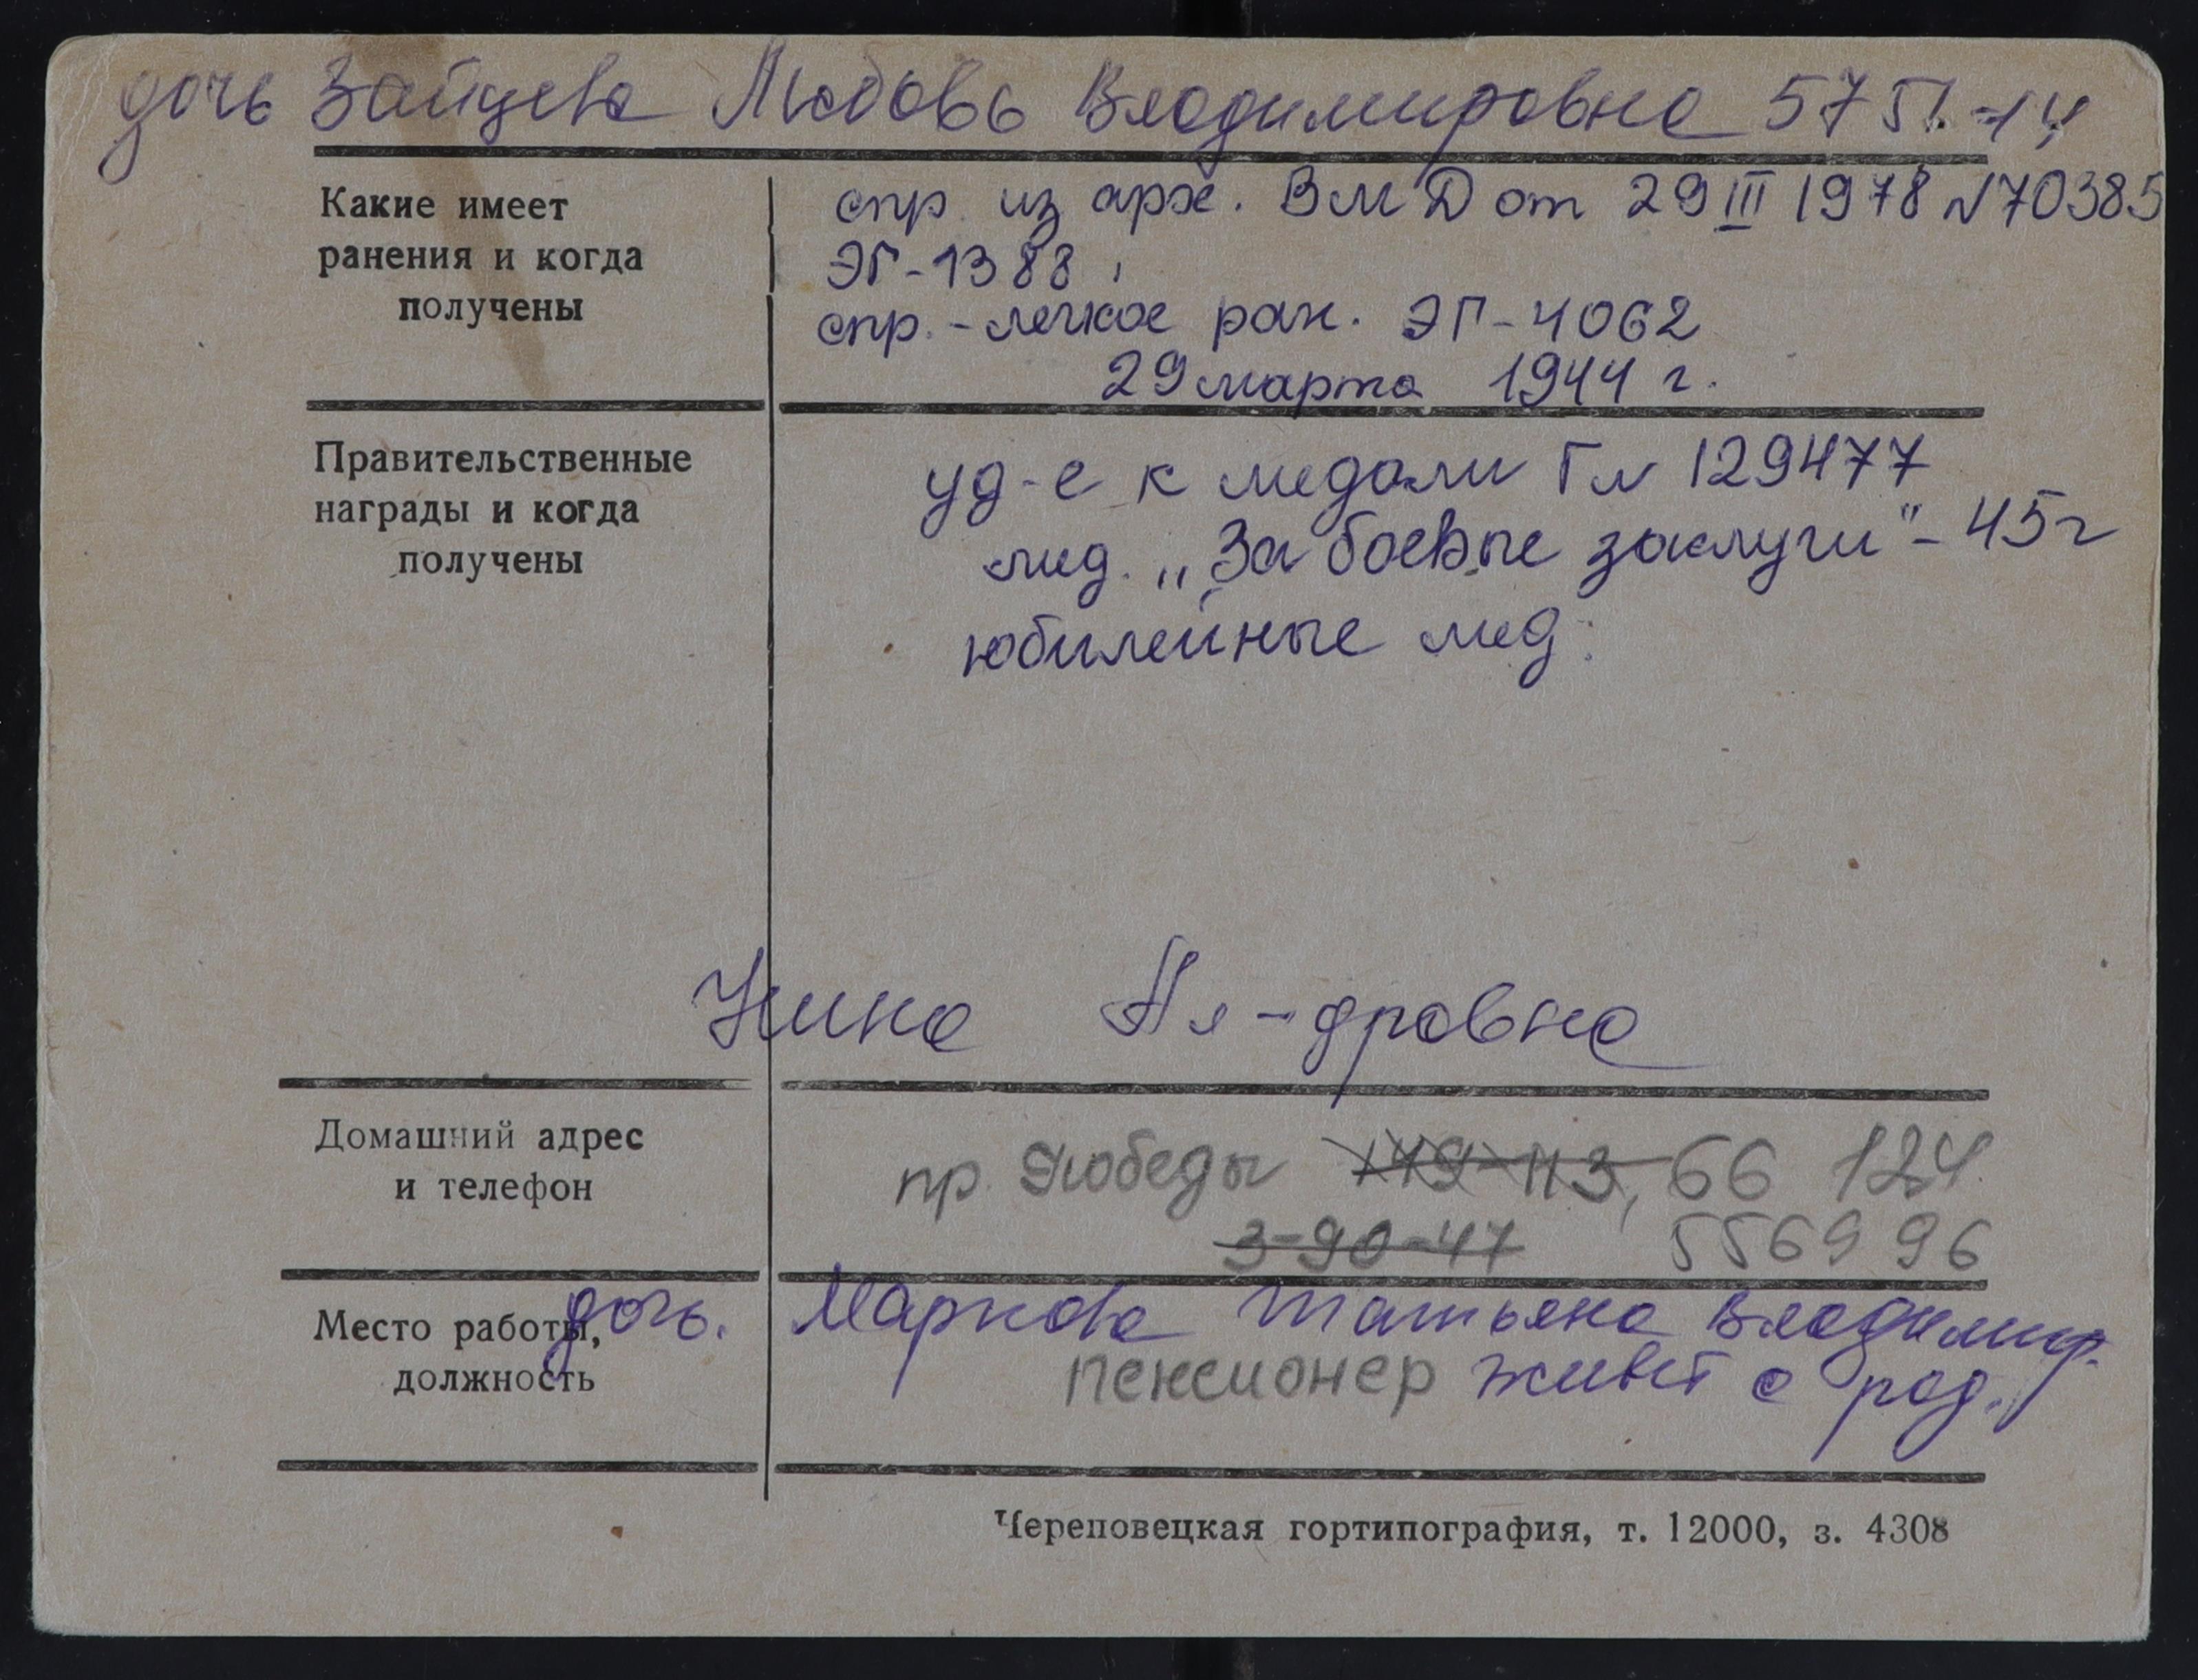 дочь Зайцева Любовь Владимировна 57 51-14
Какие имеет
ранения и когда
получены
спр. из арх. ВМД от 29 III 1978 N70385
ЭГ-1388,
спр.-легкое ран. ЭГ-4062
29 марта 1944 г.
Правительственные
награды и когда
получены
уд-е к медали Г№ 129477
мед. „За боевые заслуги"- 45г
юбилейные мед.
Нина Ал-дровна
Домашний адрес
и телефон
пр. Победы 149-113, 66 124
3-90-47 556996
Место работы,
должность
дочь. Маркова Татьяна Владимир.
пенсионер живет с род.
Череповецкая гортипография, т. 12000, з. 4308